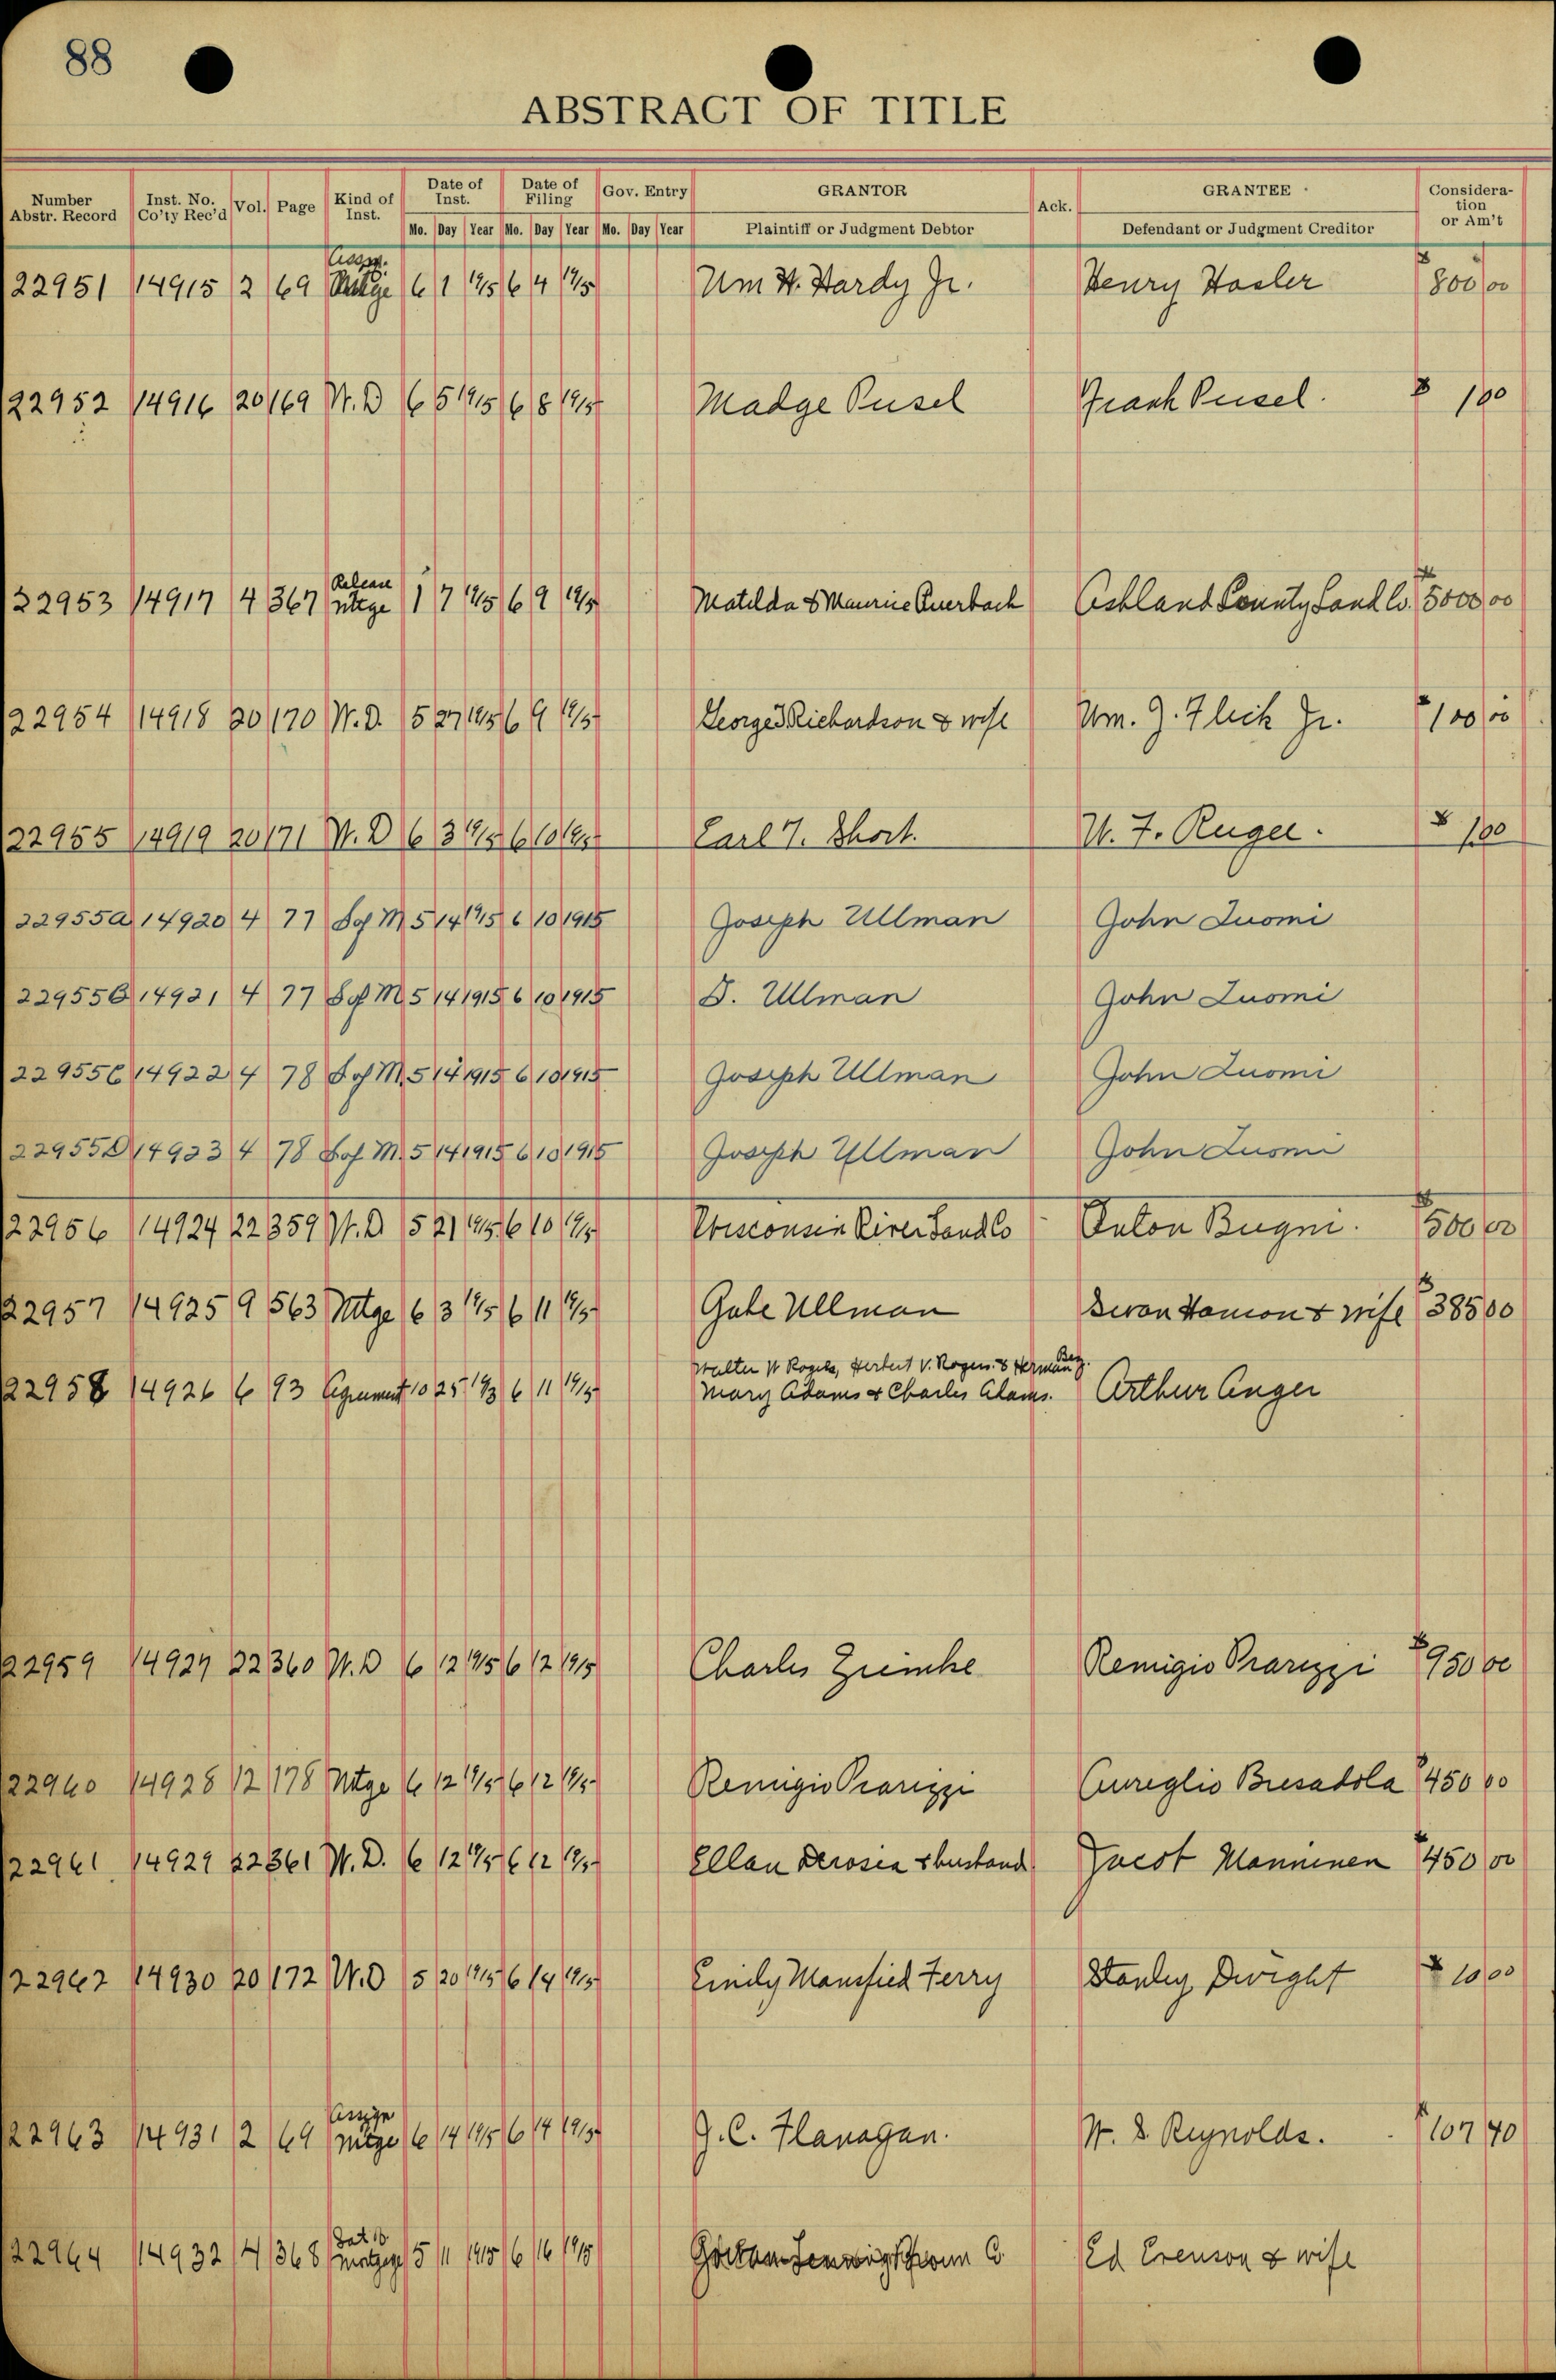 88
ABSTRACT OF TITLE
Number Abstr. Record Inst. No. Co'ty Rec'd Vol. Page Kind of Inst. Date of Inst. Date of Filing Gov. Entry GRANTOR Ack. GRANTEE Considera-tion or Am't
Mo. Day Year Mo. Day Year Mo. Day Year Plaintiff or Judgment Debtor Defendant or Judgment Creditor
22951 14915 2 69 Assgn. Mtge 6 1 1915 6 4 1915 Wm H. Hardy Jr. Henry Hosler $800 00
22952 14916 20 169 W.D 6 5 1915 6 8 1915 Madge Pusel Frank Pusel. $ 1 00
22953 14917 4 367 Release mtge 1 7 1915 6 9 1915 Matilda & Maurice Auerbach Ashland County Land Co. $5000 00
22954 14918 20 170 W.D. 5 27 1915 6 9 1915 George Richardson & wife Wm. J. Flick Jr. $100 00
22955 14919 20 171 W.D 6 3 1915 6 10 1915 Earl T. Short. W. F. Ruger. $ 1 00
22955a 14920 4 77 S of M 5 14 1915 6 10 1915 Joseph Ullman John Luomi
22955B 14921 4 77 S of M 5 14 1915 6 10 1915 J. Ullman John Luomi
22955C 14922 4 78 S of M. 5 14 1915 6 10 1915 Joseph Ullman John Luomi
22955D 14923 4 78 S of M. 5 14 1915 6 10 1915 Joseph Ullman John Luomi
22956 14924 22 359 W.D 5 21 1915 6 10 1915 Wisconsin River Land Co Anton Bugni. $500 00
22957 14925 9 563 Mtge 6 3 1915 6 11 1915 Gabe Ullman & wife $385 00
22958 14926 6 93 Agreement 10 25 1913 6 11 1915 Walter W Rogers, Herbert V. Rogers & Herman
Mary Adams & Charles Adams. Arthur Anger
22959 14927 22 360 W.D 6 12 1915 6 12 1915 Charles Zuemke Remigio Prarizzi $950 00
22960 14928 12 178 Mtge 6 12 1915 6 12 1915 Remigio Prarizzi Aureglio Bresadola $450 00
22961 14929 22 361 W.D. 6 12 1915 6 12 1915 Ellan Derosia & husband Jacob Manninen $450 00
22962 14930 20 172 W.D 5 20 1915 6 14 1915 Emily Mansfied Ferry Stanley Dwight $ 10 00
22963 14931 2 69 Assign mtge 6 14 1915 6 14 1915 J. C. Flanagan. W. S. Reynolds. $107 40
22964 14932 4 368 Sat of mortgage 5 11 1915 6 16 1915 Ed Evenson & wife